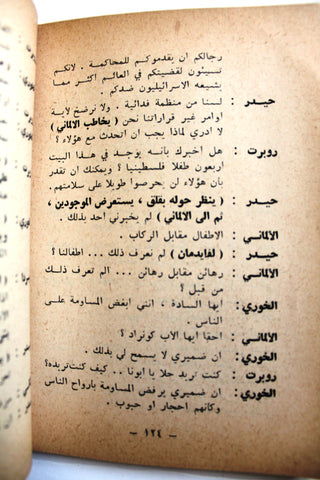 رجالكم ان يقدموكم للمحاكمة . لانكم
تسيئون لقضيتكم في العالم اكثر مما
يشيعه الاسرائيليون ضدكم .
حيدر : لسنا من منظمة فدائية . ولا نرضخ لأية
اوامر غير قراراتنا نحن ( يخاطب الالماني )
لا ادري لماذا يجب ان اتحدث مع هؤلاء ؟
روبرت : هل اخبرك بأنه يوجد في هذا البيت
اربعون طفلا فلسطينيا ؟ ويمكنك ان
تقدر بأن هؤلاء لن يحرصوا طويلا على سلامتهم .
حيدر : ( ينظر حوله بقلق ، يستعرض الموجودين ،
ثم الى الالماني ) لم يخبرني احد بذلك .
الالماني : الاطفال مقابل الركاب .
حيدر : ( لفايدمان ) لم نعرف ذلك ... اطفالنا ؟
الالماني : رهائن مقابل رهائن ... الم تعرف ذلك
من قبل ؟
الخوري : ايها السادة ، انني ابغض المساومة على
الناس .
الالماني : احقا ايها الاب كونراد ؟
الخوري : ان ضميري لا يسمح لي بذلك .
روبرت : كنت تريد حلا يا ابونا .. كيف كنت تريده ؟
الخوري : ان ضميري يرفض المساومة بأرواح الناس
وكأنهم احجار او حبوب .
- ١٢٤ -